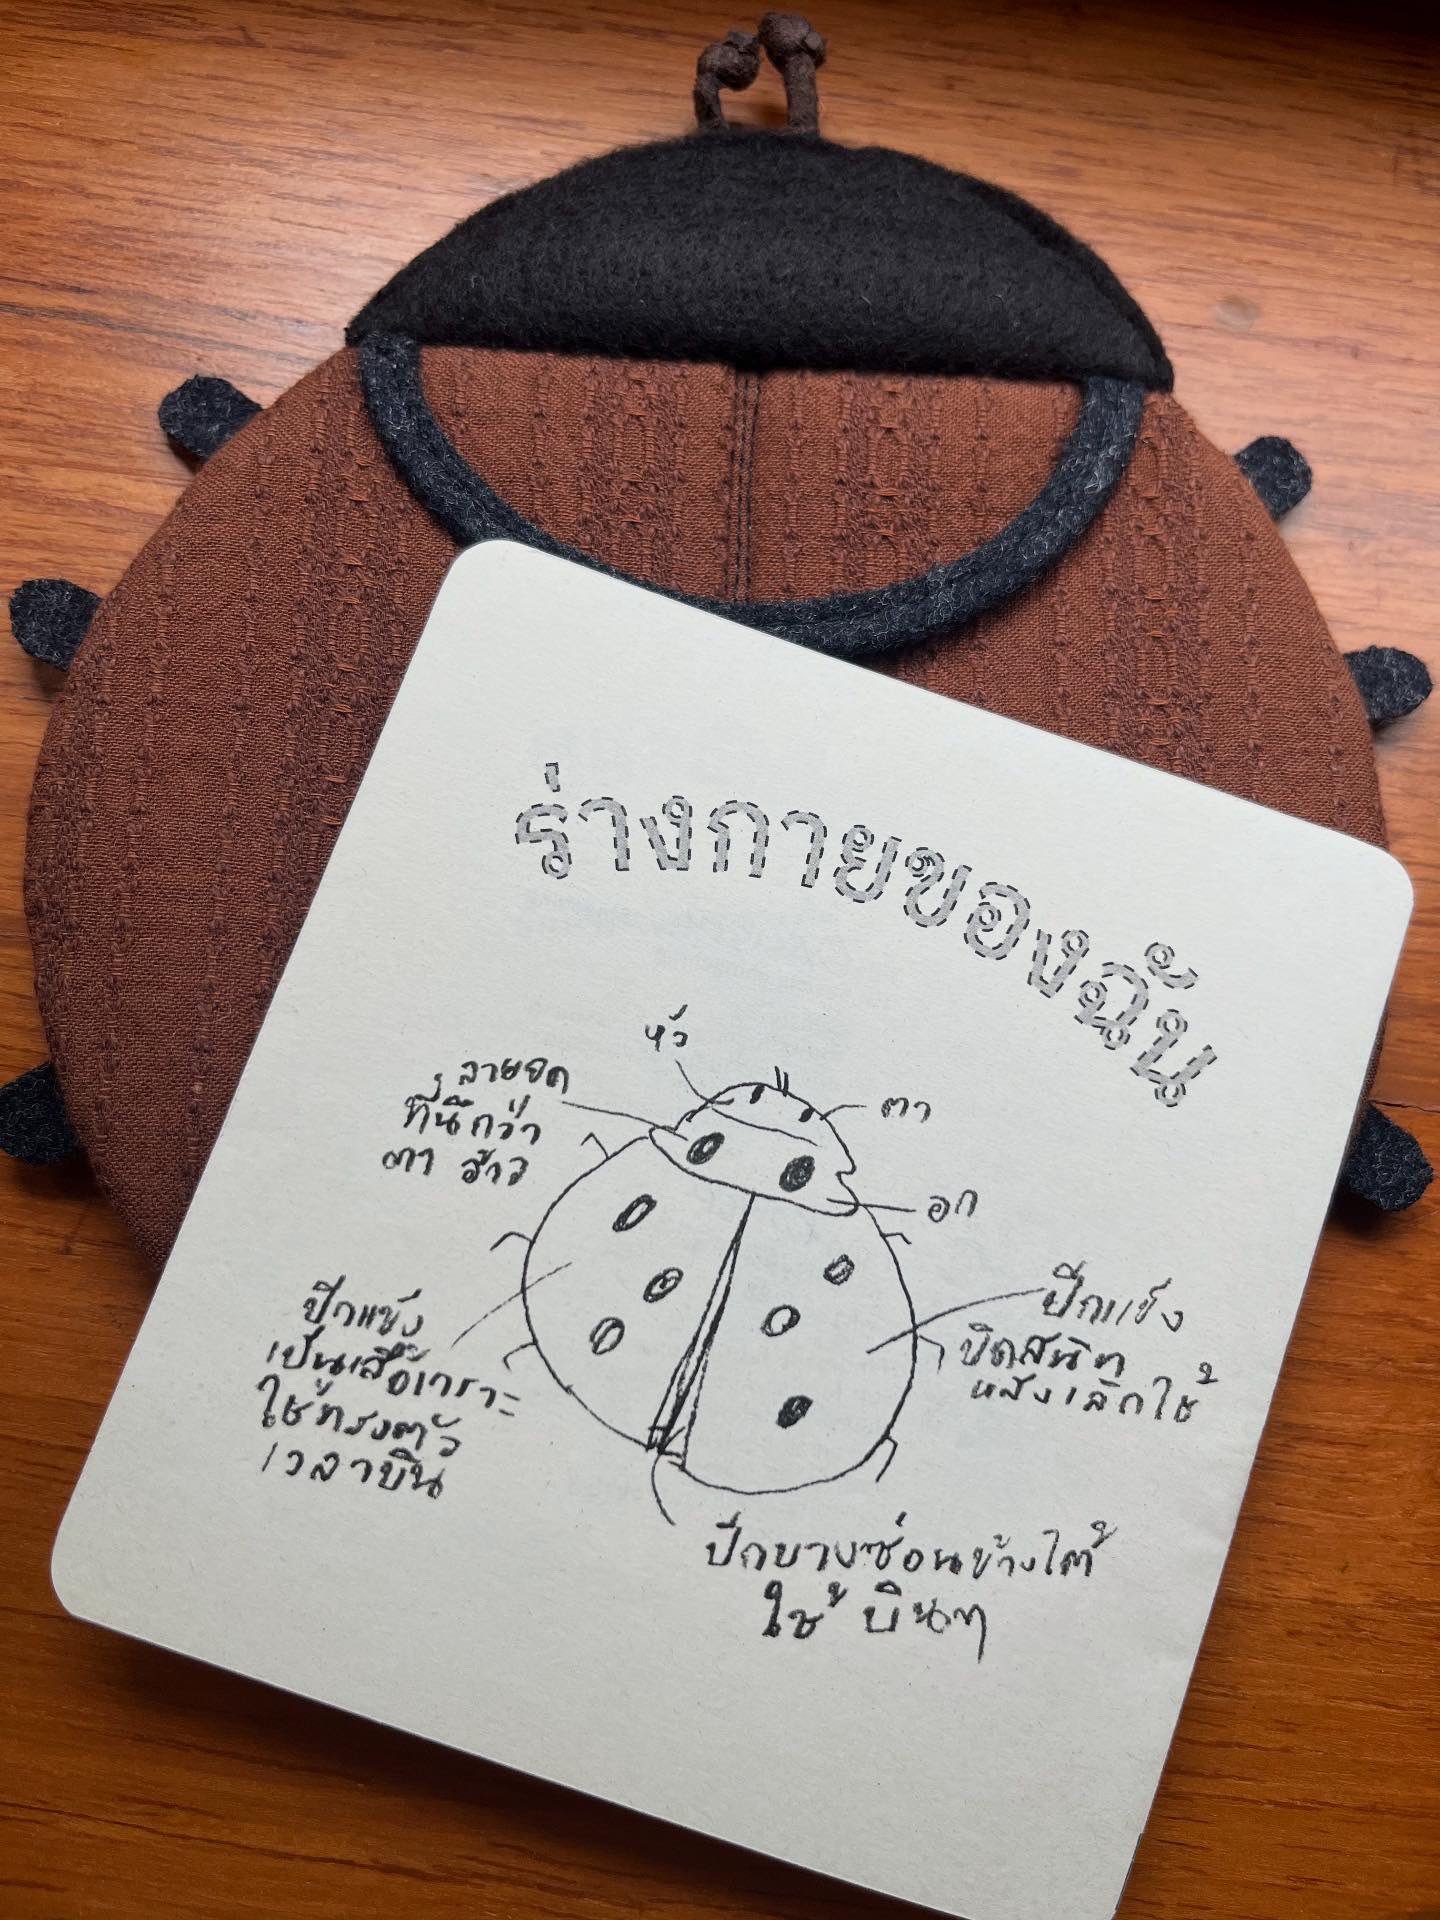 ร่างกายของฉัน
หัว
ลายจุด
ที่นึกว่า
ตา จ้าว
ตา
อก
ปีกแข็ง
เป็นเสื้อเกราะ
ใช้ทรงตัว
เวลาบิน
ปีกแข็ง
ปิดสนิท
หลังเลิกใช้
ปีกบางซ่อนข้างใต้
ใช้ บินๆ